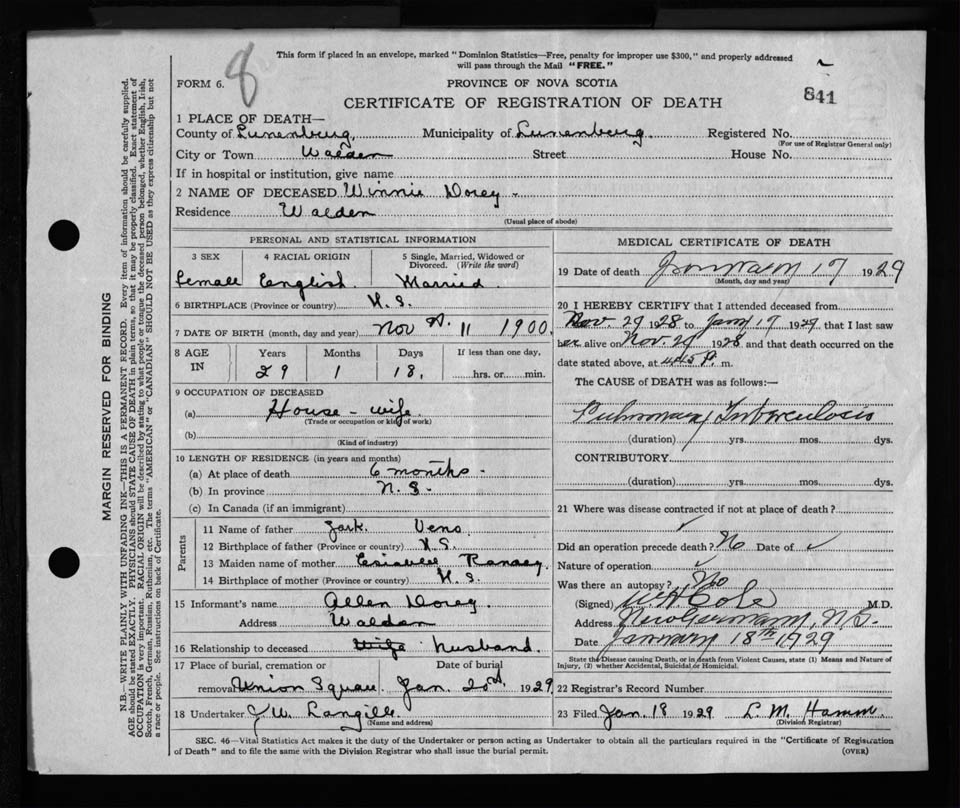 This form if placed in an envelope, marked "Dominion Statistics—Free, penalty for improper use $300," and properly addressed
will pass through the Mail "FREE."
FORM 6. 8
PROVINCE OF NOVA SCOTIA
CERTIFICATE OF REGISTRATION OF DEATH
841
1 PLACE OF DEATH—
County of Lunenburg, Municipality of Lunenburg. Registered No.
(For use of Registrar General only)
City or Town Walden Street House No.
If in hospital or institution, give name
2 NAME OF DECEASED Winnie Dorey -
Residence Walden
(Usual place of abode)
PERSONAL AND STATISTICAL INFORMATION
3 SEX 4 RACIAL ORIGIN 5 Single, Married, Widowed or Divorced. (Write the word)
Female English. Married.
6 BIRTHPLACE (Province or country) N. S.
7 DATE OF BIRTH (month, day and year) Nov 11 1900.
8 AGE IN Years Months Days If less than one day,
29 1 18, hrs. or min.
9 OCCUPATION OF DECEASED
(a) House-wife.
(Trade or occupation or kind of work)
(b)
(Kind of industry)
10 LENGTH OF RESIDENCE (in years and months)
(a) At place of death 6 months -
(b) In province N. S-
(c) In Canada (if an immigrant)
Parents
11 Name of father Jark. Veno
12 Birthplace of father (Province or country) N. S.
13 Maiden name of mother Ramey.
14 Birthplace of mother (Province or country) N. S.
15 Informant's name Allen Dorey.
Address Walden
16 Relationship to deceased Wife husband.
17 Place of burial, cremation or removal Date of burial
Union Square. Jan. 20th. 1929
18 Undertaker J W. Langille
(Name and address)
MEDICAL CERTIFICATE OF DEATH
19 Date of death January 17 1929
(Month, day and year)
20 I HEREBY CERTIFY that I attended deceased from
Nov. 29 1928 to Jany 17 1929 that I last saw
her alive on Nov. 29 1928 and that death occurred on the
date stated above, at 4.45 P. m.
The CAUSE of DEATH was as follows:—
Pulmonary Tuberculosis
(duration) yrs. mos. dys.
CONTRIBUTORY
(duration) yrs. mos. dys.
21 Where was disease contracted if not at place of death?
✓
Did an operation precede death? No Date of ✓
Nature of operation ✓
Was there an autopsy? No
(Signed) W H Cole M.D.
Address New Germany, N.S.
Date January 18th 1929
State the Disease causing Death, or in death from Violent Causes, state (1) Means and Nature of
Injury, (2) whether Accidental, Suicidal or Homicidal.
22 Registrar's Record Number
23 Filed Jan. 18 1929 L. M. Hamm
(Division Registrar)
SEC. 46—Vital Statistics Act makes it duty of the Undertaker or person acting as Undertaker to obtain all the particulars required in the "Certificate of Registration
of Death" and to file the same with the Division Registrar who shall issue the burial permit. (OVER)
MARGIN RESERVED FOR BINDING
N.B.—WRITE PLAINLY WITH UNFADING INK—THIS IS A PERMANENT RECORD. Every item of information should be carefully supplied.
AGE should be stated EXACTLY. PHYSICIANS should STATE CAUSE OF DEATH in plain terms, so that it may be properly classified. Exact statement of
OCCUPATION is very important. RACIAL ORIGIN will be described by stating to what people or tongue the deceased person belonged, whether English, Irish,
Scotch, French, German, Russian, Ruthenian, etc. The terms "AMERICAN" or "CANADIAN" SHOULD NOT BE USED as they express citizenship but not
a race or people. See instructions on back of Certificate.